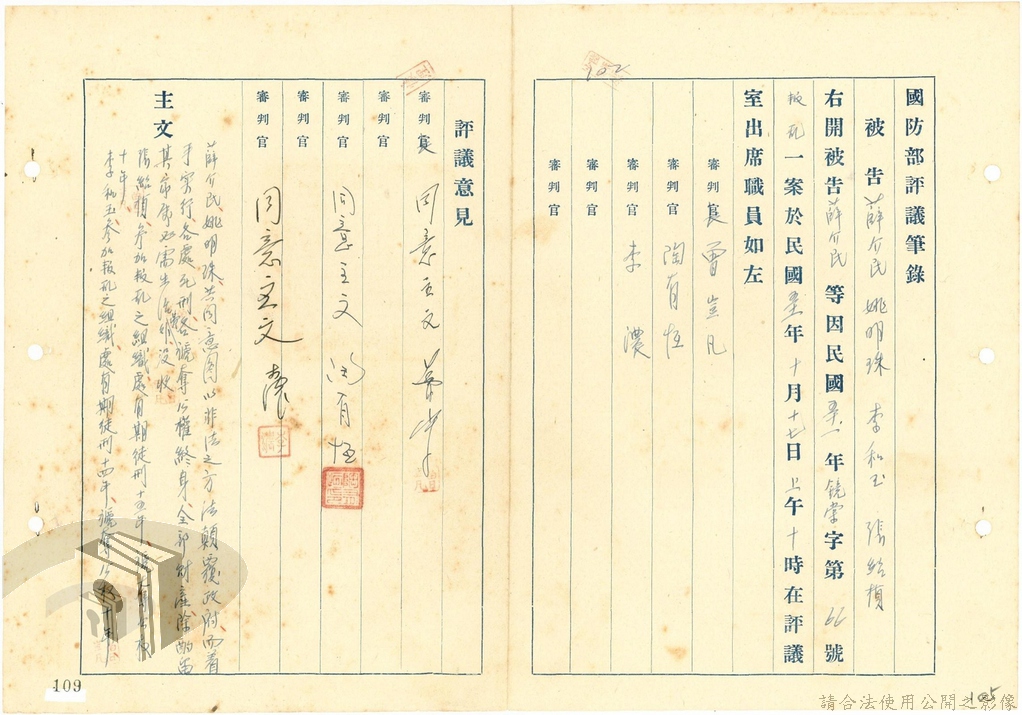 國防部評議筆錄
被告薛介民 姚明珠 李和玉 張紹楨
右開被告薛介民等因民國五十一年鏡棠字第66號
叛亂一案於民國五十一年十月十七日上午十時在評議
室出席職員如左
審判長 曹豈凡
審判官 陶有恆
審判官 李濃
審判官
審判官
評議意見
審判長 同意主文
審判官
審判官 同意主文 陶有恆
審判官
審判官 同意主文 濃
主文
薛介民姚明珠共同意圖以非法之方法顛覆政府而着
手實行各處死刑各褫奪公權終身全部財產除酌留
其家屬必需生活費外沒收
張紹楨參加叛亂之組織處有期徒刑十五年褫奪公權
十年
李和玉參加叛亂之組織處有期徒刑十四年褫奪公權十年
102
109
105
請合法使用公開之影像